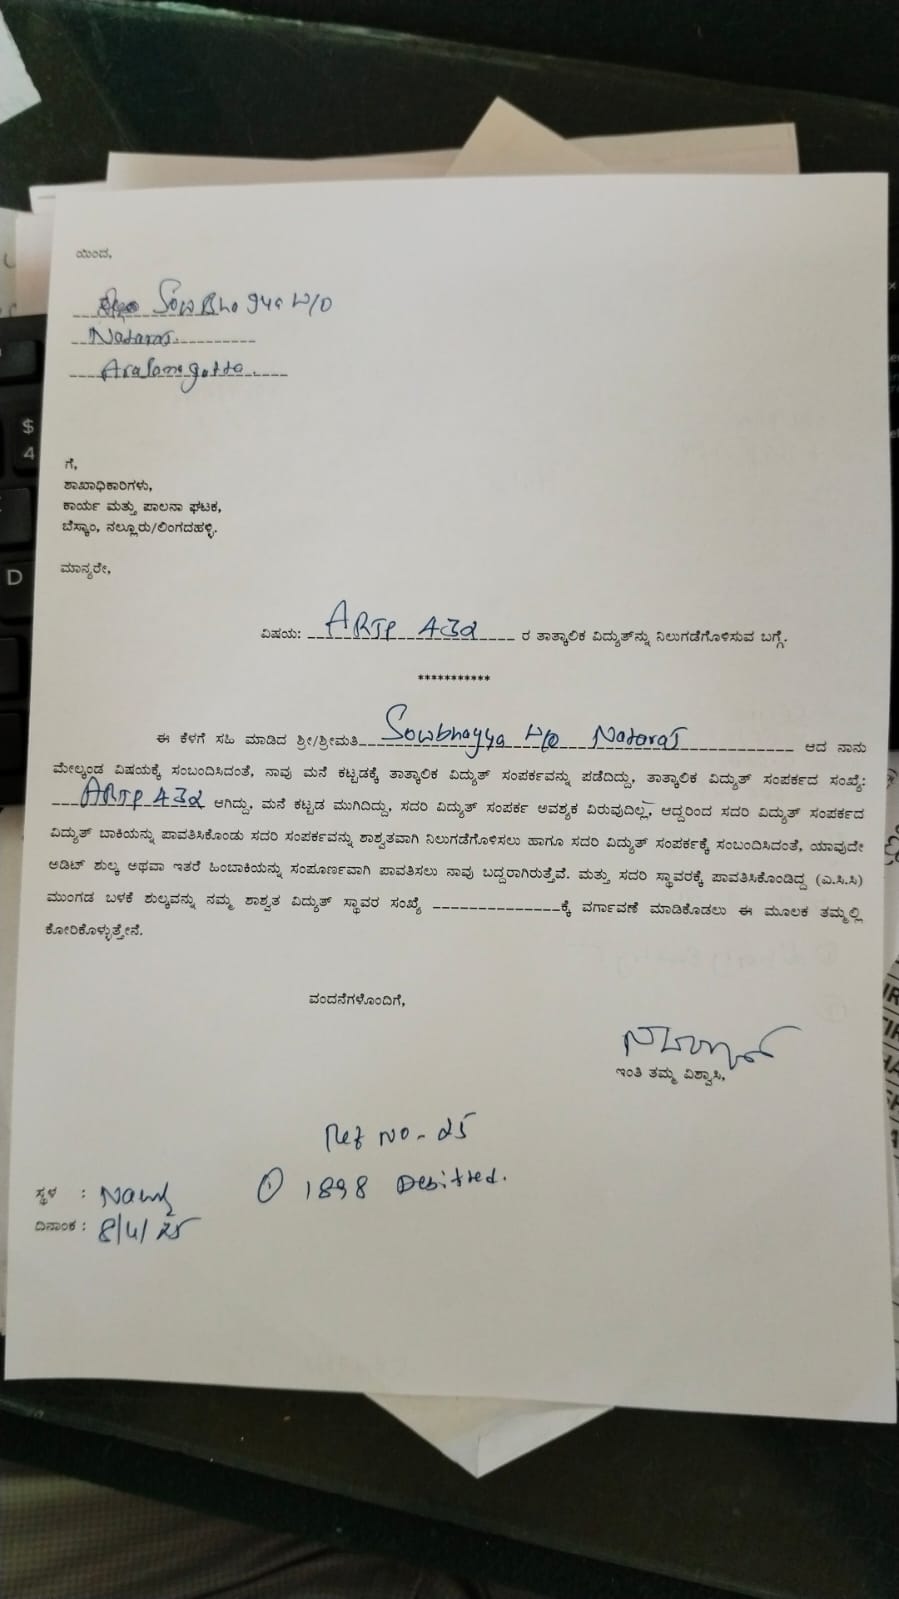 ಯಿಂದ,
SowBhagya W/O
Nataraj.
Aralamagutta.
ಗೆ,
ಶಾಖಾಧಿಕಾರಿಗಳು,
ಕಾರ್ಯ ಮತ್ತು ಪಾಲನಾ ಘಟಕ,
ಬೆಸ್ಕಾಂ, ನಲ್ಲೂರು/ಲಿಂಗದಹಳ್ಳಿ.
ಮಾನ್ಯರೇ,
ವಿಷಯ: ARTP 432 ರ ತಾತ್ಕಾಲಿಕ ವಿದ್ಯುತ್‌ನ್ನು ನಿಲುಗಡೆಗೊಳಿಸುವ ಬಗ್ಗೆ.
***********
ಈ ಕೆಳಗೆ ಸಹಿ ಮಾಡಿದ ಶ್ರೀ/ಶ್ರೀಮತಿ Sowbhagya W/O Nataraj ಆದ ನಾನು
ಮೇಲ್ಕಂಡ ವಿಷಯಕ್ಕೆ ಸಂಬಂದಿಸಿದಂತೆ, ನಾವು ಮನೆ ಕಟ್ಟಡಕ್ಕೆ ತಾತ್ಕಾಲಿಕ ವಿದ್ಯುತ್ ಸಂಪರ್ಕವನ್ನು ಪಡೆದಿದ್ದು, ತಾತ್ಕಾಲಿಕ ವಿದ್ಯುತ್ ಸಂಪರ್ಕದ ಸಂಖ್ಯೆ:
ARTP 432 ಆಗಿದ್ದು, ಮನೆ ಕಟ್ಟಡ ಮುಗಿದಿದ್ದು, ಸದರಿ ವಿದ್ಯುತ್ ಸಂಪರ್ಕ ಅವಶ್ಯಕ ವಿರುವುದಿಲ್ಲ, ಆದ್ದರಿಂದ ಸದರಿ ವಿದ್ಯುತ್ ಸಂಪರ್ಕದ
ವಿದ್ಯುತ್ ಬಾಕಿಯನ್ನು ಪಾವತಿಸಿಕೊಂಡು ಸದರಿ ಸಂಪರ್ಕವನ್ನು ಶಾಶ್ವತವಾಗಿ ನಿಲುಗಡೆಗೊಳಿಸಲು ಹಾಗೂ ಸದರಿ ವಿದ್ಯುತ್ ಸಂಪರ್ಕಕ್ಕೆ ಸಂಬಂದಿಸಿದಂತೆ, ಯಾವುದೇ
ಆಡಿಟ್ ಶುಲ್ಕ ಅಥವಾ ಇತರೆ ಹಿಂಬಾಕಿಯನ್ನು ಸಂಪೂರ್ಣವಾಗಿ ಪಾವತಿಸಲು ನಾವು ಬದ್ದರಾಗಿರುತ್ತೆವೆ. ಮತ್ತು ಸದರಿ ಸ್ಥಾವರಕ್ಕೆ ಪಾವತಿಸಿಕೊಂಡಿದ್ದ (ಎ.ಸಿ.ಸಿ)
ಮುಂಗಡ ಬಳಕೆ ಶುಲ್ಕವನ್ನು ನಮ್ಮ ಶಾಶ್ವತ ವಿದ್ಯುತ್ ಸ್ಥಾವರ ಸಂಖ್ಯೆ _______________ಕ್ಕೆ ವರ್ಗಾವಣೆ ಮಾಡಿಕೊಡಲು ಈ ಮೂಲಕ ತಮ್ಮಲ್ಲಿ
ಕೋರಿಕೊಳ್ಳುತ್ತೇನೆ.
ವಂದನೆಗಳೊಂದಿಗೆ,
ಇಂತಿ ತಮ್ಮ ವಿಶ್ವಾಸಿ,
Ref NO- 25
① 1898 Debitted.
ಸ್ಥಳ :
ದಿನಾಂಕ : 8/4/25
$
4
D